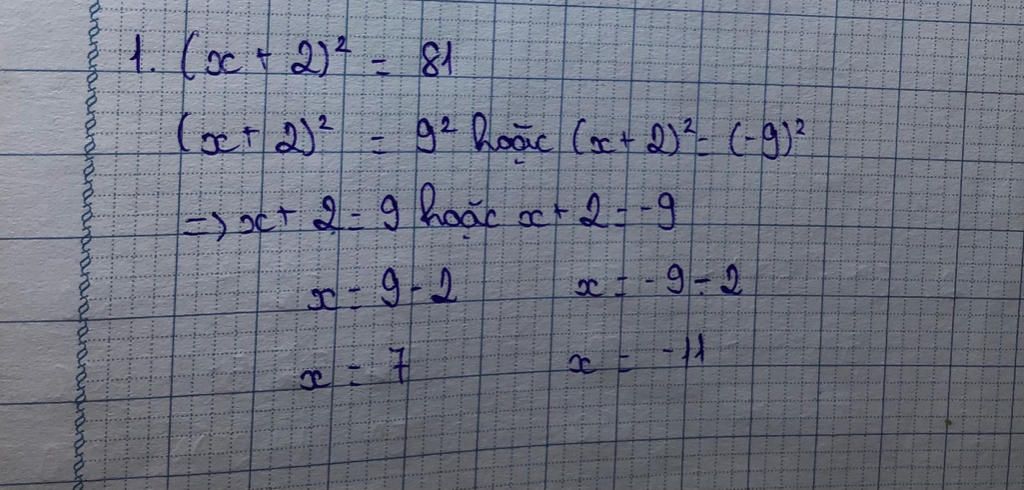 1. (x + 2)² = 81
(x + 2)² = 9² hoặc (x + 2)² = (-9)²
=> x + 2 = 9 hoặc x + 2 = -9
x = 9 - 2 x = -9 - 2
x = 7 x = -11